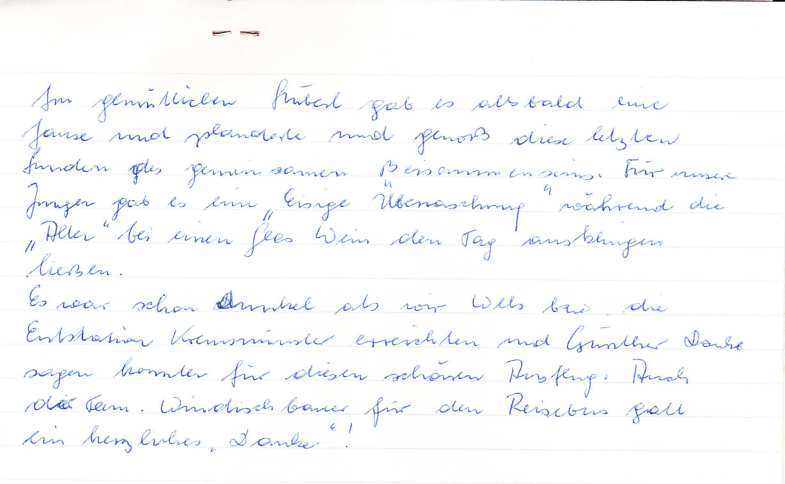 Im gemütlichen Stüberl gab es alsbald eine
Jause und plauderte und genoß diese letzten
Stunden des gemeinsamen Beisammenseins. Für unsere
Jungen gab es ein „Eisige Überraschung" während die
„Alten" bei einen Glas Wein den Tag ausklingen
ließen.
Es war schon dunkel als wir Wels bzw. die
Endstation Kremsmünster erreichten und Günther Danke
sagen konnten für diesen schönen Ausflug. Auch
die Fam. Windischbauer für den Reisebus galt
ein herzliches „Danke"!